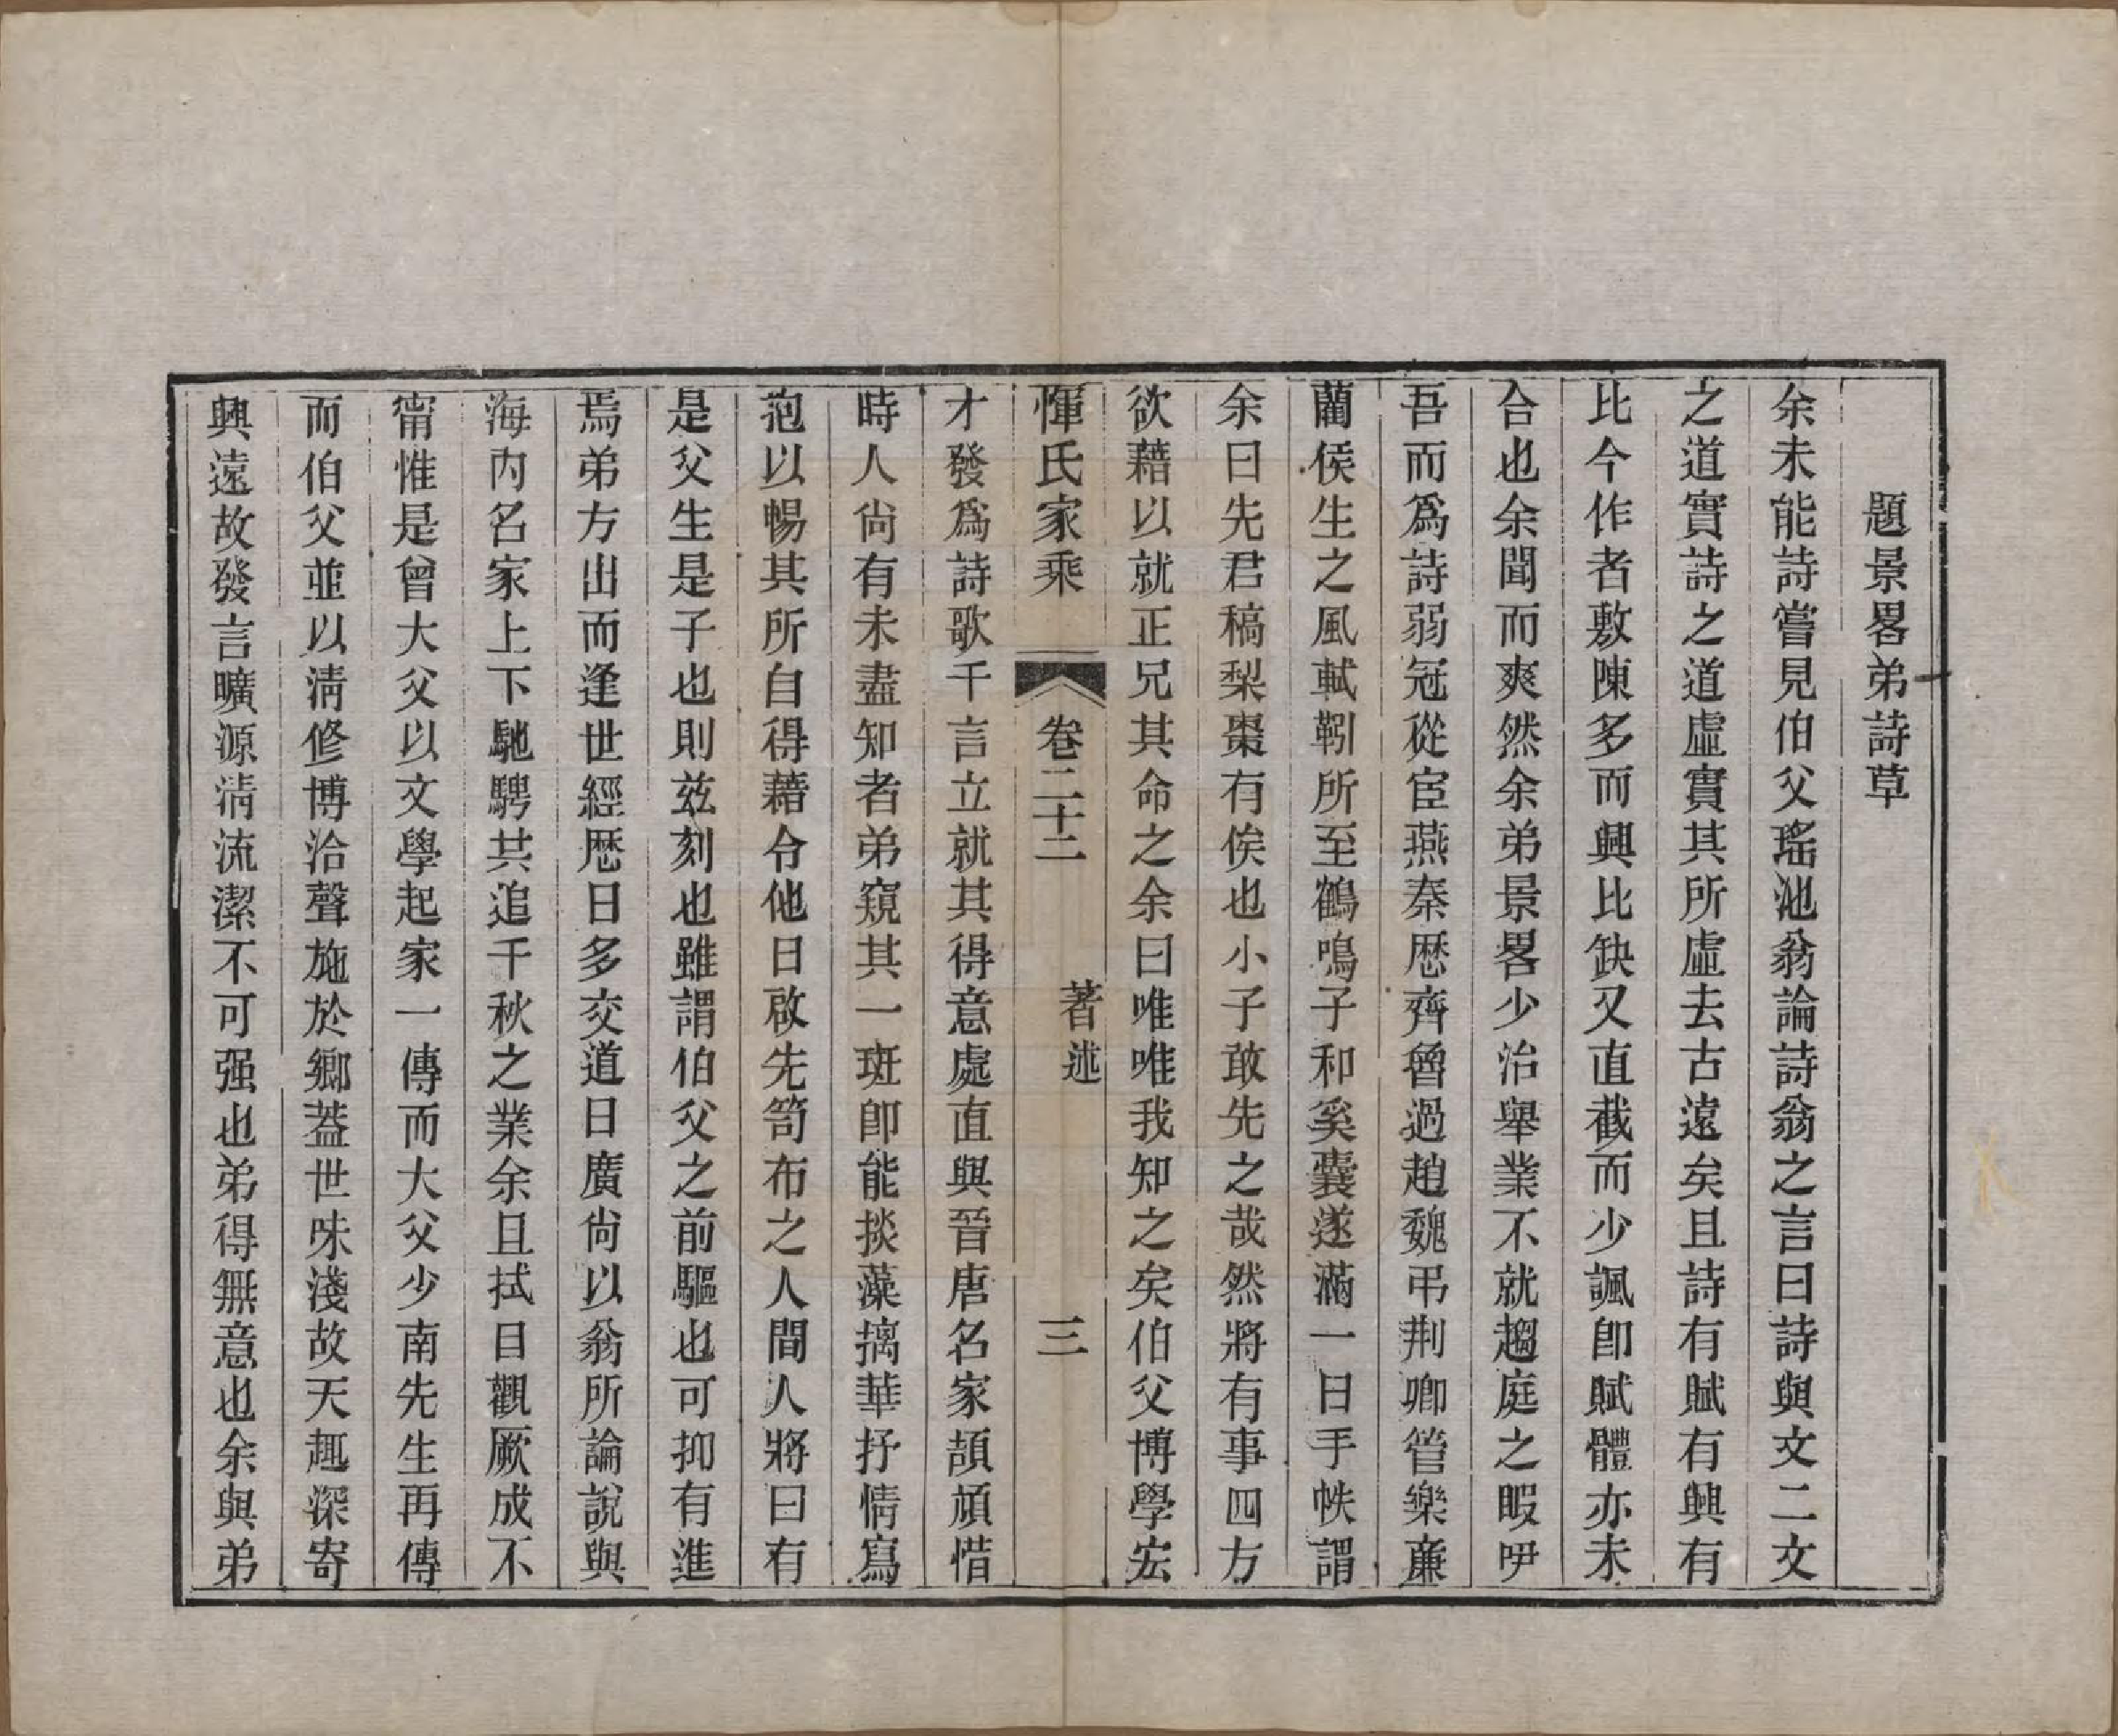 題景畧弟詩草
余未能詩嘗見伯父瑤池翁論詩翁之言曰詩與文二文
之道實詩之道虛實其所虛去古遠矣且詩有賦有興有
比今作者敷陳多而興比缺又直截而少諷卽賦體亦未
合也余聞而爽然余弟景畧少治舉業不就趨庭之暇吚
吾而爲詩弱冠從宦燕秦歷齊魯過趙魏弔荆卿管樂廉
藺侯生之風軾靷所至鶴鳴子和奚囊遂滿一日手帙謂
余曰先君稿梨棗有俟也小子敢先之哉然將有事四方
欲藉以就正兄其命之余曰唯唯我知之矣伯父博學宏
惲氏家乘 卷二十二 著述 三
才發爲詩歌千言立就其得意處直與晉唐名家頡頏惜
時人尙有未盡知者弟窺其一斑卽能掞藻摛華抒情寫
抱以暢其所自得藉令他日啟先笥布之人間人將曰有
是父生是子也則兹刻也雖謂伯父之前驅也可抑有進
焉弟方出而逢世經歷日多交道日廣尙以翁所論說與
海內名家上下馳騁共追千秋之業余且拭目觀厥成不
甯惟是曾大父以文學起家一傳而大父少南先生再傳
而伯父並以淸修博洽聲施於鄉葢世味淺故天趣深寄
興遠故發言曠源淸流潔不可强也弟得無意也余與弟